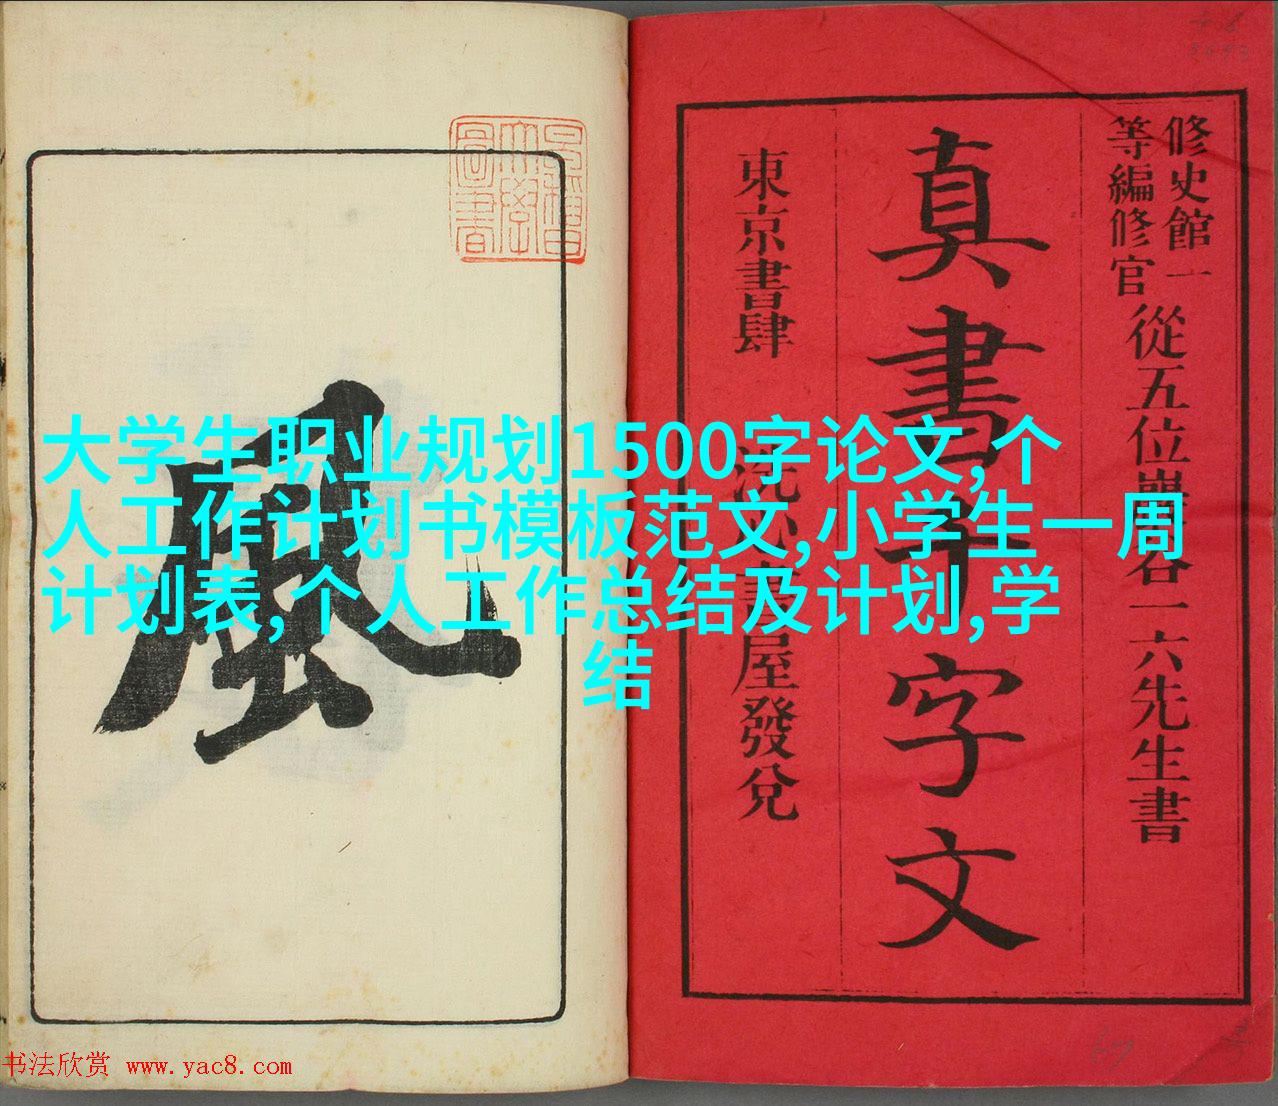 修史館一
等編修官
從五位巖谷一六先生書
真書千字文
東京書肆
洗心書屋發兌
風
大学生职业规划1500字论文,个
人工作计划书模板范文,小学生一周
计划表,个人工作总结及计划,学
结
书法欣赏 www.yac8.com